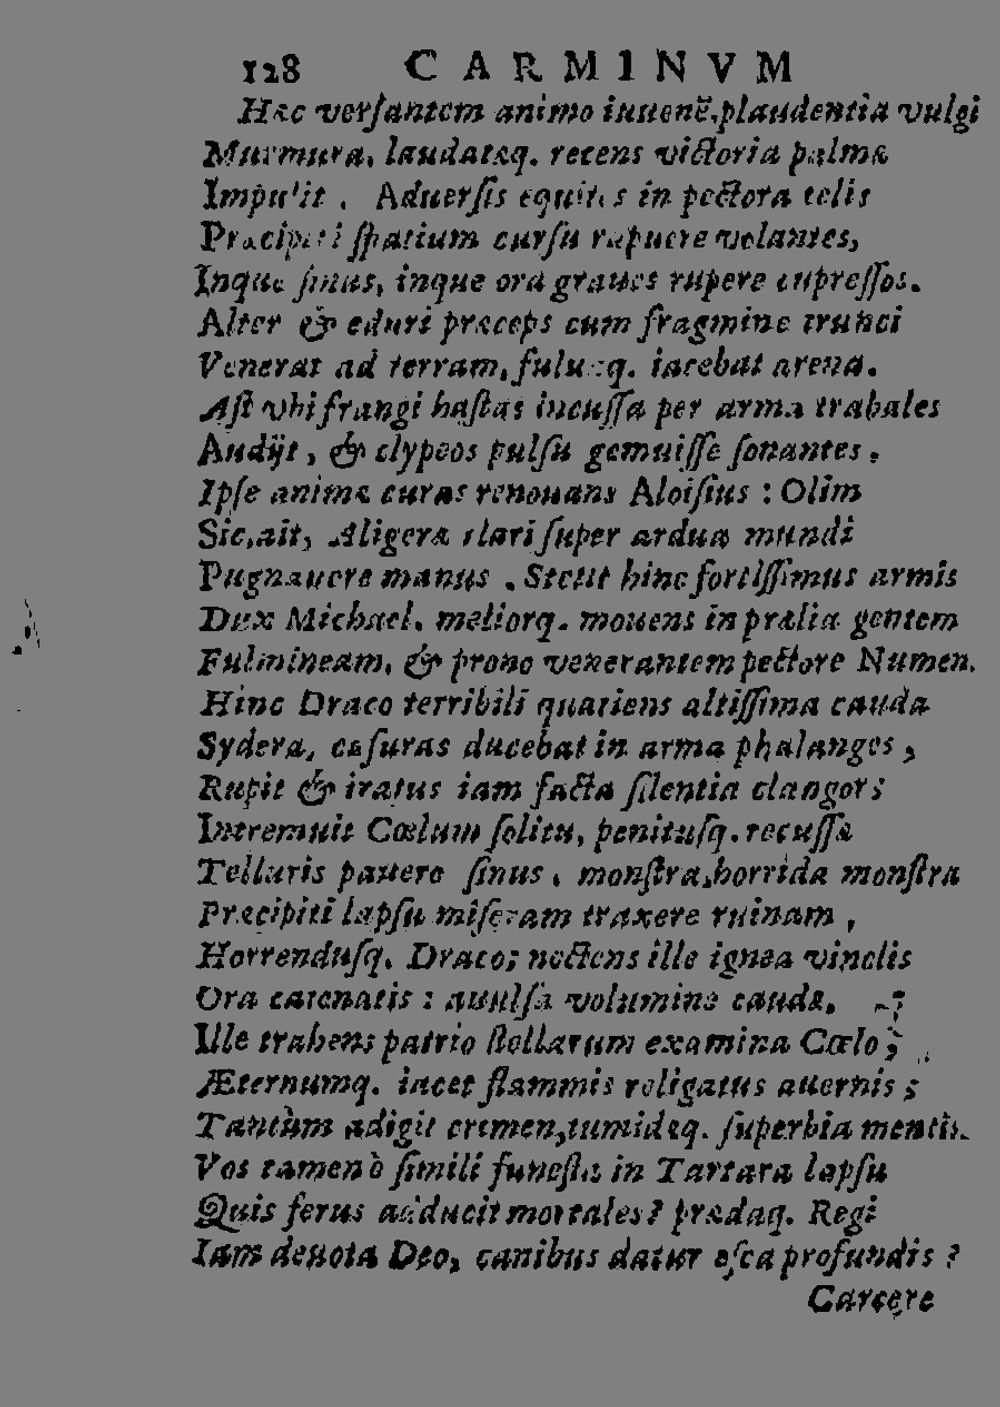 128 CARMINVM
Hæc versantem animo iuuenẽ, plaudentia vulgi
Murmura, laudatæq. recens victoria palmæ
Impulit. Aduersis equites in pectora telis
Præcipiti spatium cursu rapuere volantes,
Inque sinus, inque ora graues rupere cupressos.
Alter & eduri præceps cum fragmine trunci
Venerat ad terram, fuluaq. iacebat arena.
Ast vbi frangi hastas incussa per arma trabales
Audijt, & clypeos pulsu gemuisse sonantes.
Ipse animæ curas renouans Aloisius: Olim
Sic, ait, Aligeræ clari super ardua mundi
Pugnauere manus. Stetit hinc fortissimus armis
Dux Michael. meliorq. mouens in prælia gentem
Fulmineam, & prono venerantem pectore Numen.
Hinc Draco terribili quatiens altissima cauda
Sydera, cæsuras ducebat in arma phalanges,
Rupit & iratus iam facta silentia clangor:
Intremuit Cœlum solitu, penitusq. recussæ
Telluris pauere sinus. monstra, horrida monstra
Præcipiti lapsu miseram traxere ruinam,
Horrendusq. Draco; nectens ille ignea vinclis
Ora catenatis: auulsa volumine caudæ.
Ille trahens patrio stellarum examina Cœlo;
Æternumq. iacet flammis religatus auernis;
Tantùm adigit crimen, tumidæq. superbia mentis.
Vos tamen ò simili funesta in Tartara lapsu
Quis ferus adducit mortales? prædaq. Regi
Iam deuota Deo, canibus datur esca profundis?
Carcere